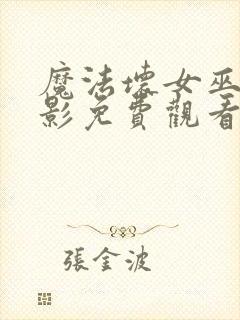 魔法壞女巫
影免費觀看
張金波